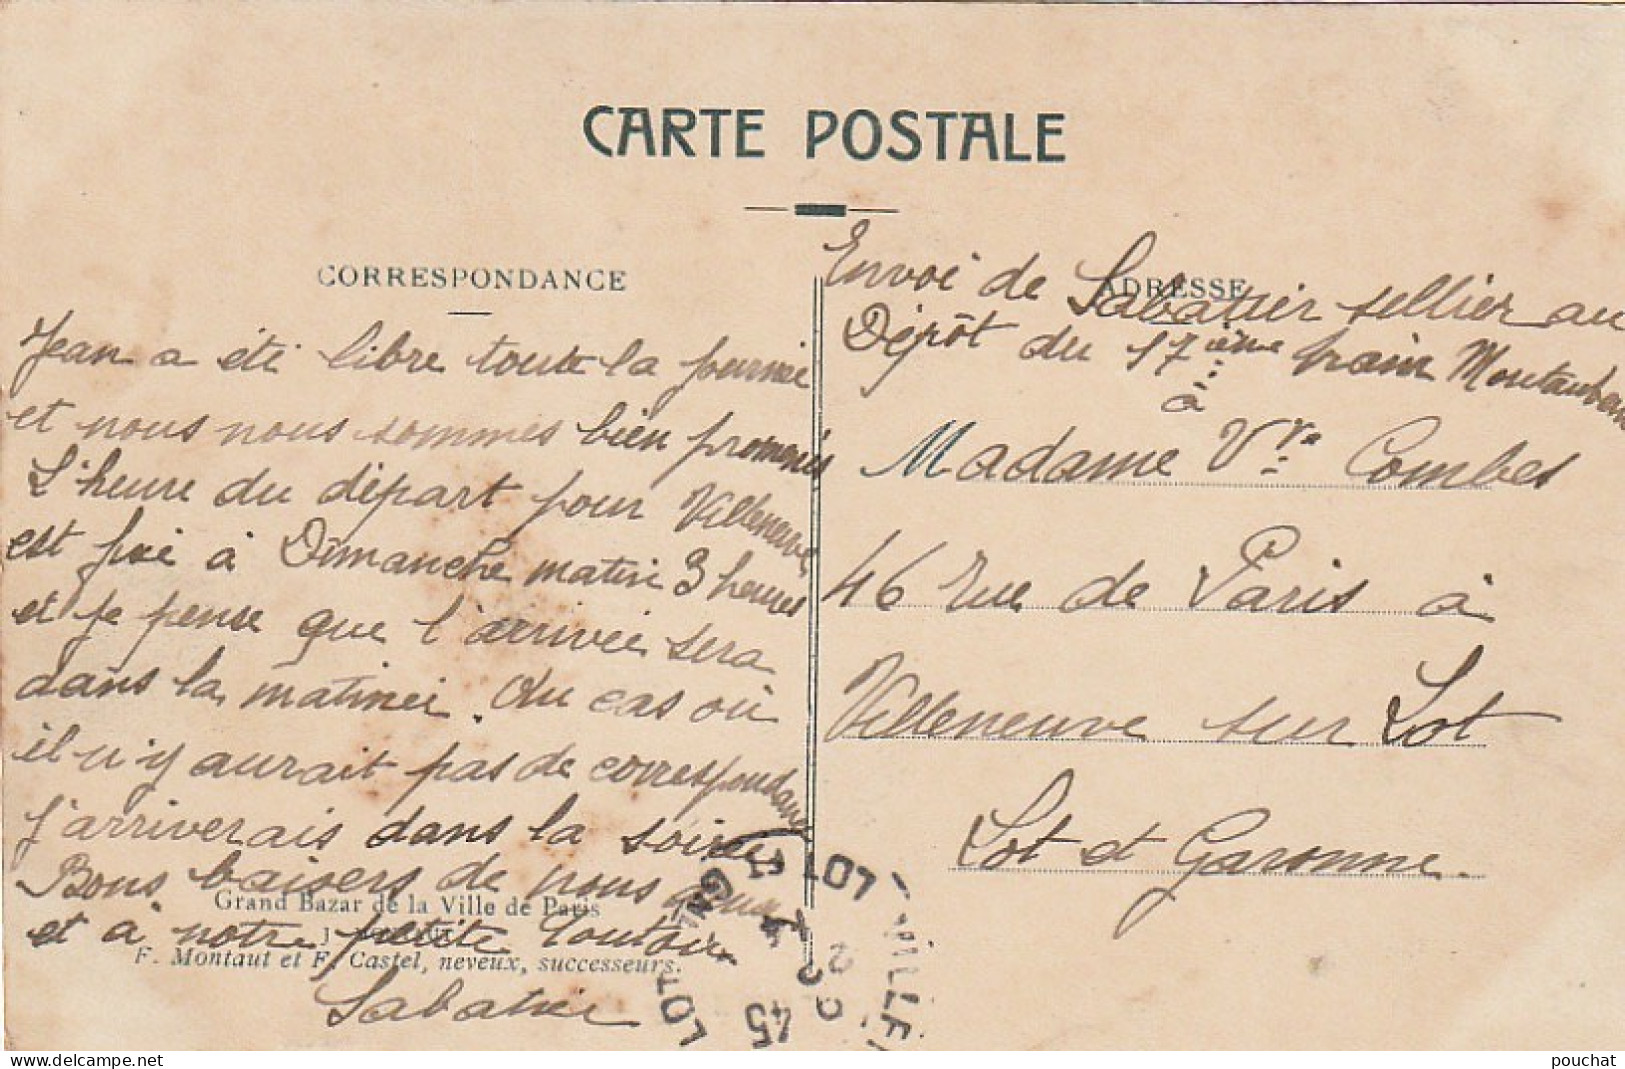 CARTE POSTALE
CORRESPONDANCE
Jean a été libre toute la journée
et nous nous sommes bien promenés
L'heure du départ pour Villeneuve,
est fixé à Dimanche matin 3 heures
et je pense que l'arrivée sera
dans la matinée. Au cas où
il n'y aurait pas de correspondance
j'arriverais dans la soirée
Bons baisers de nous deux
et à notre petite
Sabatier
Grand Bazar de la Ville de Paris
F. Montaut et F. Castel, neveux, successeurs.
ADRESSE
Envoi de Sabatier sellier au
Dépôt du 17ième train Montauban
à
Madame Vve Combes
46 rue de Paris à
Villeneuve sur Lot
Lot et Garonne.
delcampe.net
pouchat